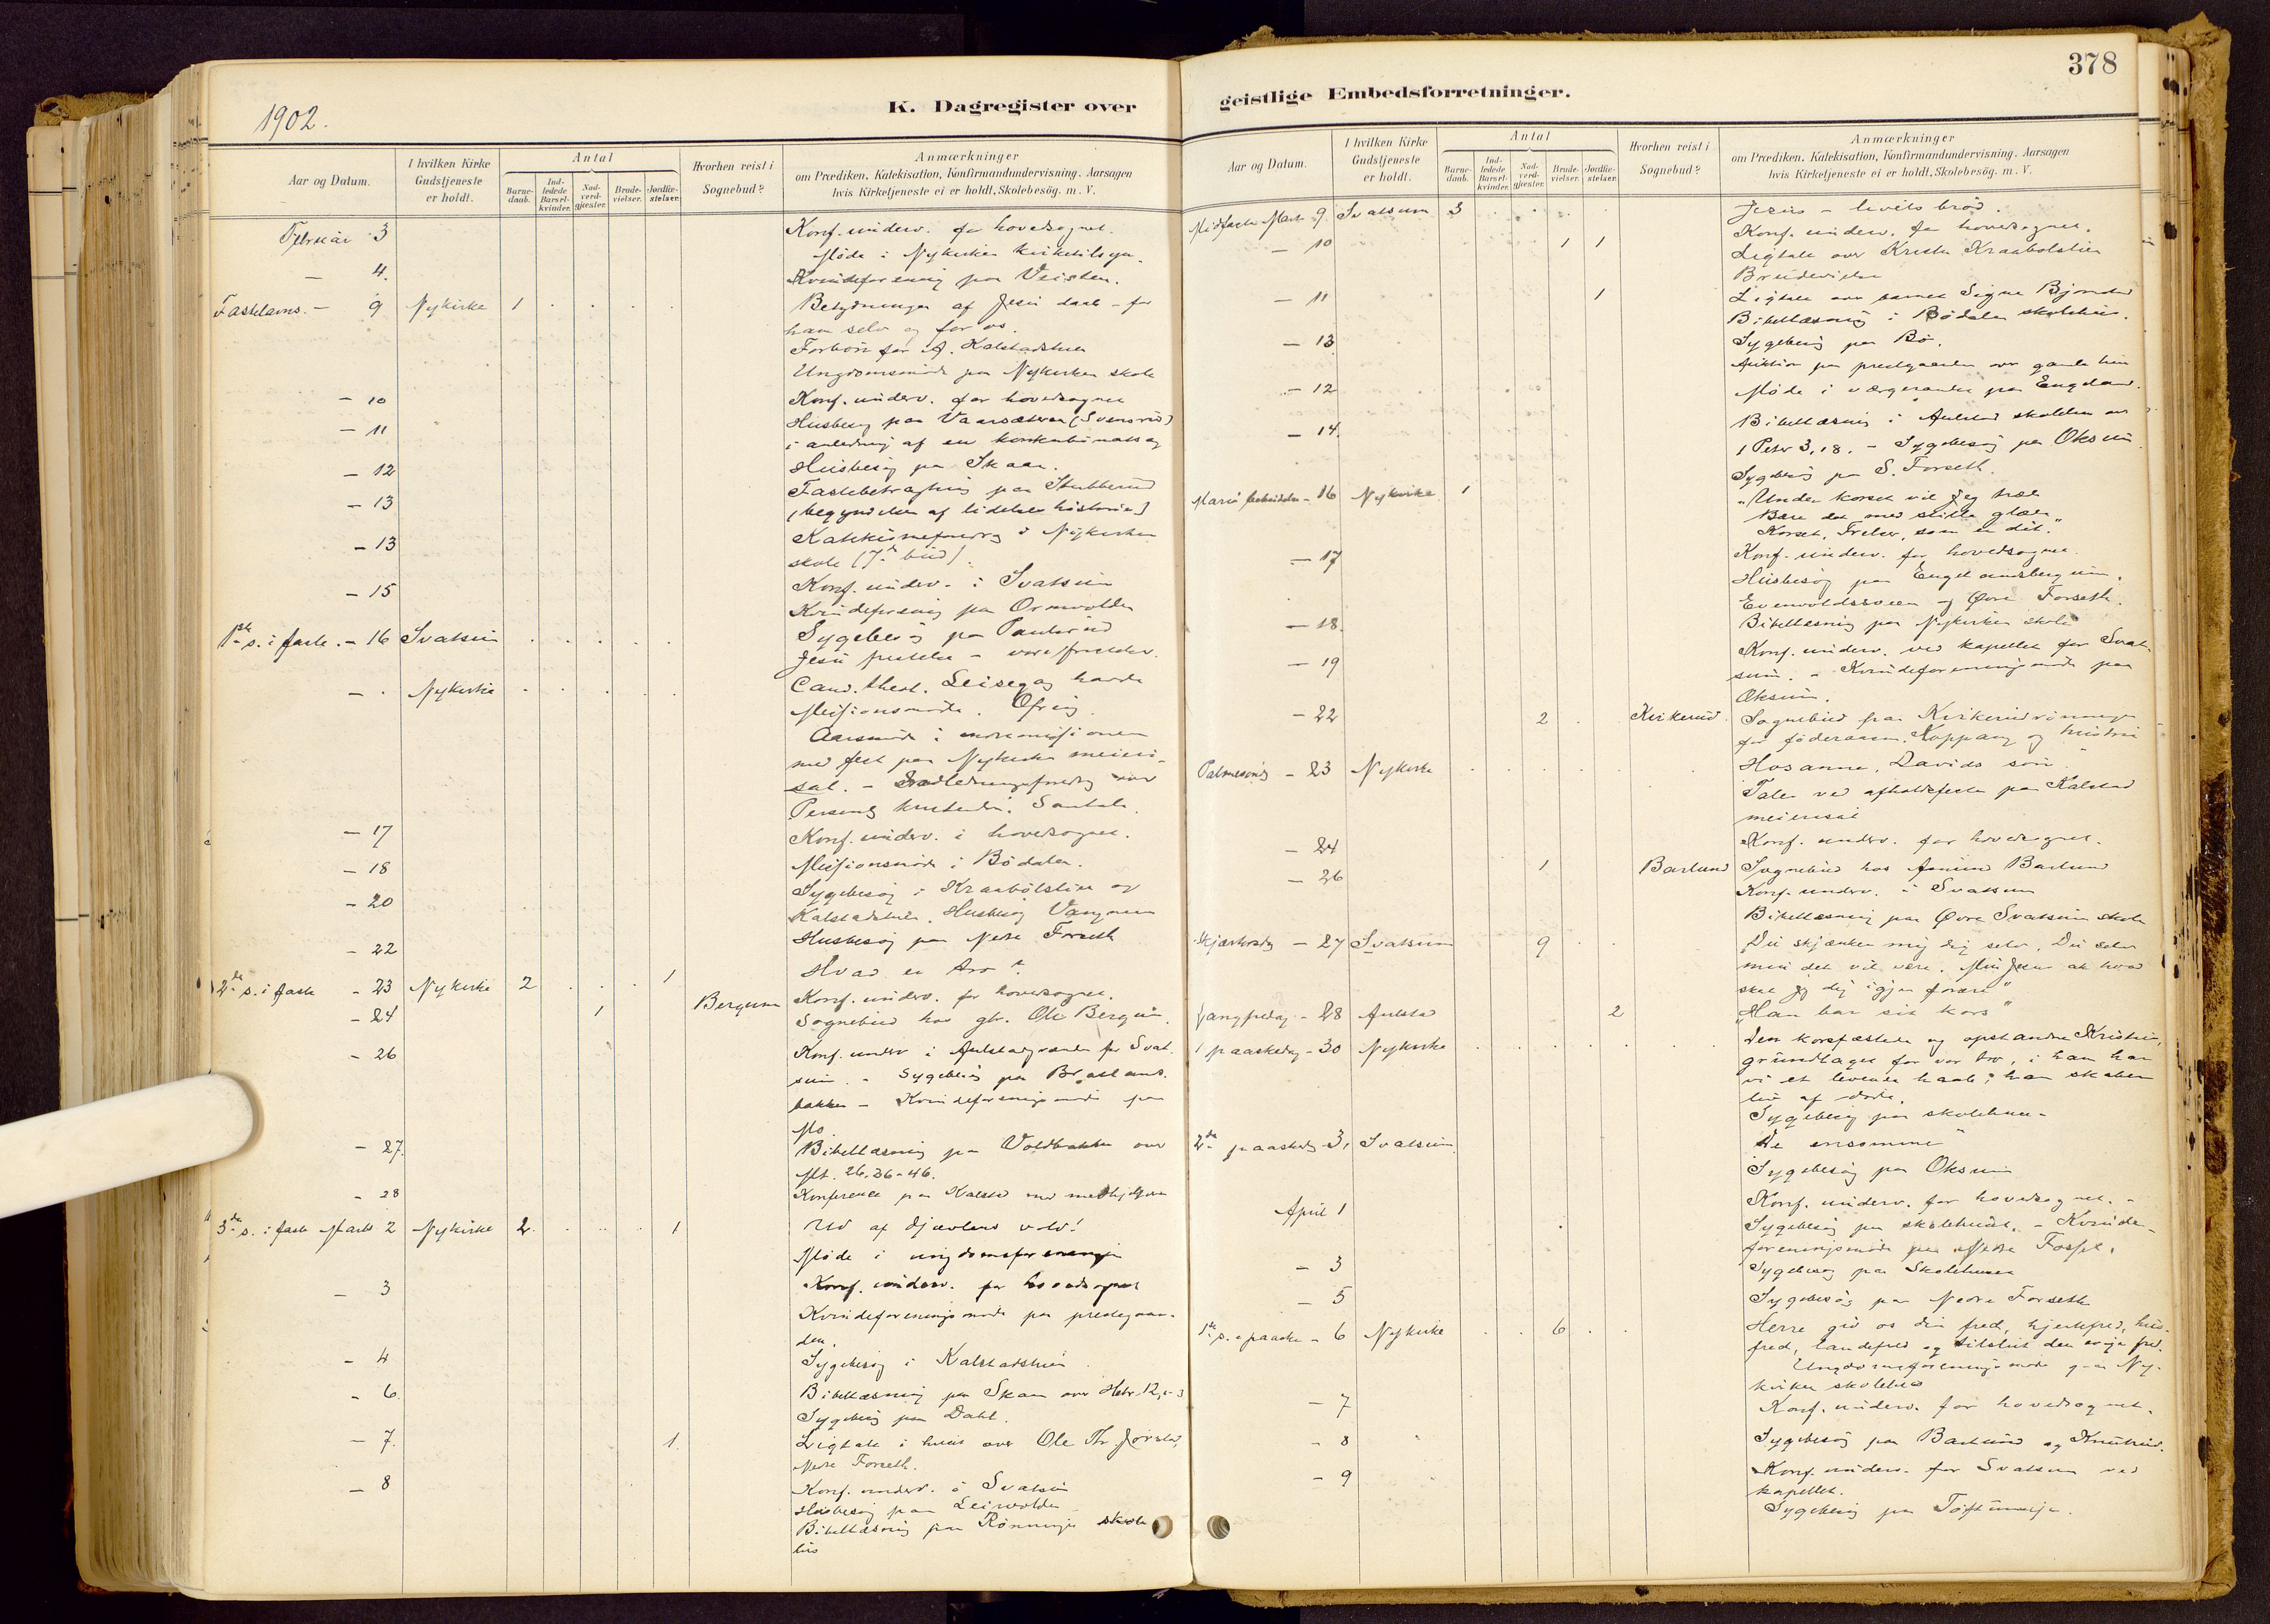 1902.
K. Dagregister over
Aar og Datum.
I hvilken Kirke
Gudstjeneste
er holdt.
Antal
Barne-
daab.
Ind-
ledede
Barsel-
kvinder.
Nad-
verd-
gjæster.
Brude-
vielser.
Jordfæ-
stelser.
Hvorhen reist i
Sognebud?
Anmærkninger
om Prædiken, Katekisation, Konfirmandundervisning. Aarsagen
hvis Kirketjeneste ei er holdt, Skolebesög. m. V.
Februar 3 Konf. underv. for hovedsognet.
Möde i Nykirken kirketilsyn.
— 4. Kvindeforening paa Veisten.
Fastelavns. — 9 Nykirke 1 Betydningen af Jesu daab – for
ham selv og for os.
Forbön for A. Kalstadstuen
Ungdomsmöde paa Nykirken skole
— 10 Konf. underv. for hovedsognet
— 11 Husbesög paa Vaarsæteren
i anledning af en konkubinatsag
— 12 Husbesög paa Skaar.
— 13 Fastebetragtning paa Stubberud
(begyndelsen af lidelseshistorien)
— 13 Nykirken
skole (7de bud).
— 15 Konf. underv. i Svatsum
Kvindeforening paa Ormvolden
1ste s. i faste. — 16 Svatsum Sygebesög paa Paulsrud
Jesu fristelse – vore fristelser.
— . Nykirke Cand. theol. Leisegang havde
Missionsmöde. Ofring.
Aarsmöde i indremissionen
med fest paa Nykirke meieri-
sal. –
— 17 Konf. underv. i hovedsognet.
— 18 Missionsmöde i Bödalen.
— 20 Sygebesög i Kraabölstuen og
Kalstadstuen. Husbesög
— 22 Husbesög paa Nedre Forseth
2de s. i faste — 23 Nykirke 2 1 Hvad er tro?
— 24 1 Bergum Konf. underv. for hovedsognet.
Sognebud hos gbr. Ole Bergum.
— 26 Konf. underv. i Aulstad for Svat-
sum. – Sygebesög paa
bakken – Kvindeforeningsmöde paa
Mo.
— 27. Bibellæsning paa Voldbakken over
Mt. 26, 36-46.
— 28 Konference paa Kalstad med medhjelperne
3de s. i faste Marts 2 Nykirke 2. 1 Ud af djævlens vold!
Möde i ungdomsforeningen
— 3 Konf. underv. for hovedsognet
Kvindeforeningsmöde paa prestegaar-
den.
— 4 Sygebesög i Kalstadstuen
— 6. Bibellæsning paa Skaar over Hebr. 12,
Sygebesög paa Dahl.
— 7. 1. Ligtale i huset over Ole Jörstad,
Nedre Forseth.
— 8 Konf. underv. i Svatsum
Husbesög paa Leirvolden
Bibellæsning paa Rönningen skole
hus
378
geistlige Embedsforretninger.
Aar og Datum.
I hvilken Kirke
Gudstjeneste
er holdt.
Antal
Barne-
daab.
Ind-
ledede
Barsel-
kvinder.
Nad-
verd-
gjæster.
Brude-
vielser.
Jordfæ-
stelser.
Hvorhen reist i
Sognebud?
Anmærkninger
om Prædiken, Katekisation, Konfirmandundervisning. Aarsagen
hvis Kirketjeneste ei er holdt, Skolebesög. m. V.
Midfaste Marts 9 Svatsum 3 Jesus – livets bröd.
— 10 1 1 Konf. underv. for hovedsognet.
Ligtale over Kraabölstuen
Brudevielse
— 11 1 Ligtale over barnet Signe
Bibellæsning i Bödalen skolehus.
— 13 Sygebesög paa Bö.
Auktion paa prestgaarden over gamle hus
— 12 Möde i værgeraadet paa Engeland.
Bibellæsning i Aulstad skolehus over
— 14. 1 Petr 3, 18. – Sygebesög paa Oksum.
Sygebesög paa S. Forseth.
Mariæ bebudelse — 16 Nykirke 1 „Under korset vil jeg træde
Bære det med stille glæde
Korset, Frelser, som er dit."
— 17 Konf. underv. for hovedsognet.
Husbesög paa
og Övre Forseth.
— 18. Bibellæsning paa Nykirken skole
— 19 Konf. underv. ved kapellet for Svat-
sum. – Kvindeforeningsmöde paa
Oksum.
— 22 2 Kirkerud Sognebud paa
for föderaadsm. Koppang og hustru
Palmesönd. — 23 Nykirke Hosanna, Davids sön
Tale ved afholdsfesten paa Kalstad
meierisal
— 24 Konf. underv. for hovedsognet.
— 26 1 Barlund Sognebud hos Barlund
Konf. underv. i Svatsum
Bibellæsning paa Övre Svatsum skole
Skjærtorsdag — 27 Svatsum 9 Du skjænker mig dig selv, Du selv
min det vil være. Min Jesus ak hvad
skal jeg dig igjen forære"
Langfredag — 28 Aulstad 2 „Han bar sit kors"
1 paaskedag — 30 Nykirke Den korsfæstede og opstandne Kristus,
grundlaget for vor tro, i ham har
vi et levende haab; han skaber
liv af döde.
Sygebesög paa skolehuset
2den paaskedag — 31 Svatsum De ensomme"
Sygebesög paa Oksum
April 1 Konf. underv. for hovedsognet. –
Sygebesög paa skolehuset. – Kvinde-
foreningsmöde paa Nedre Forset.
— 3 Sygebesög paa Skolehuset
— 5 Sygebesög paa Nedre Forseth
1ste s. e paaske — 6 Nykirke 6 Herre giv os din fred, hjertefred, hus-
fred, landefred og tilslut den evige fred.
Ungdomsforeningsmöde paa Ny-
kirken skolehus
— 7 Konf. underv. for hovedsognet.
— 8 Sygebesög paa Barlund og Knutsrud.
— 9 Konf. underv. for Svatsum ved
kapellet.
Sygebesög paa